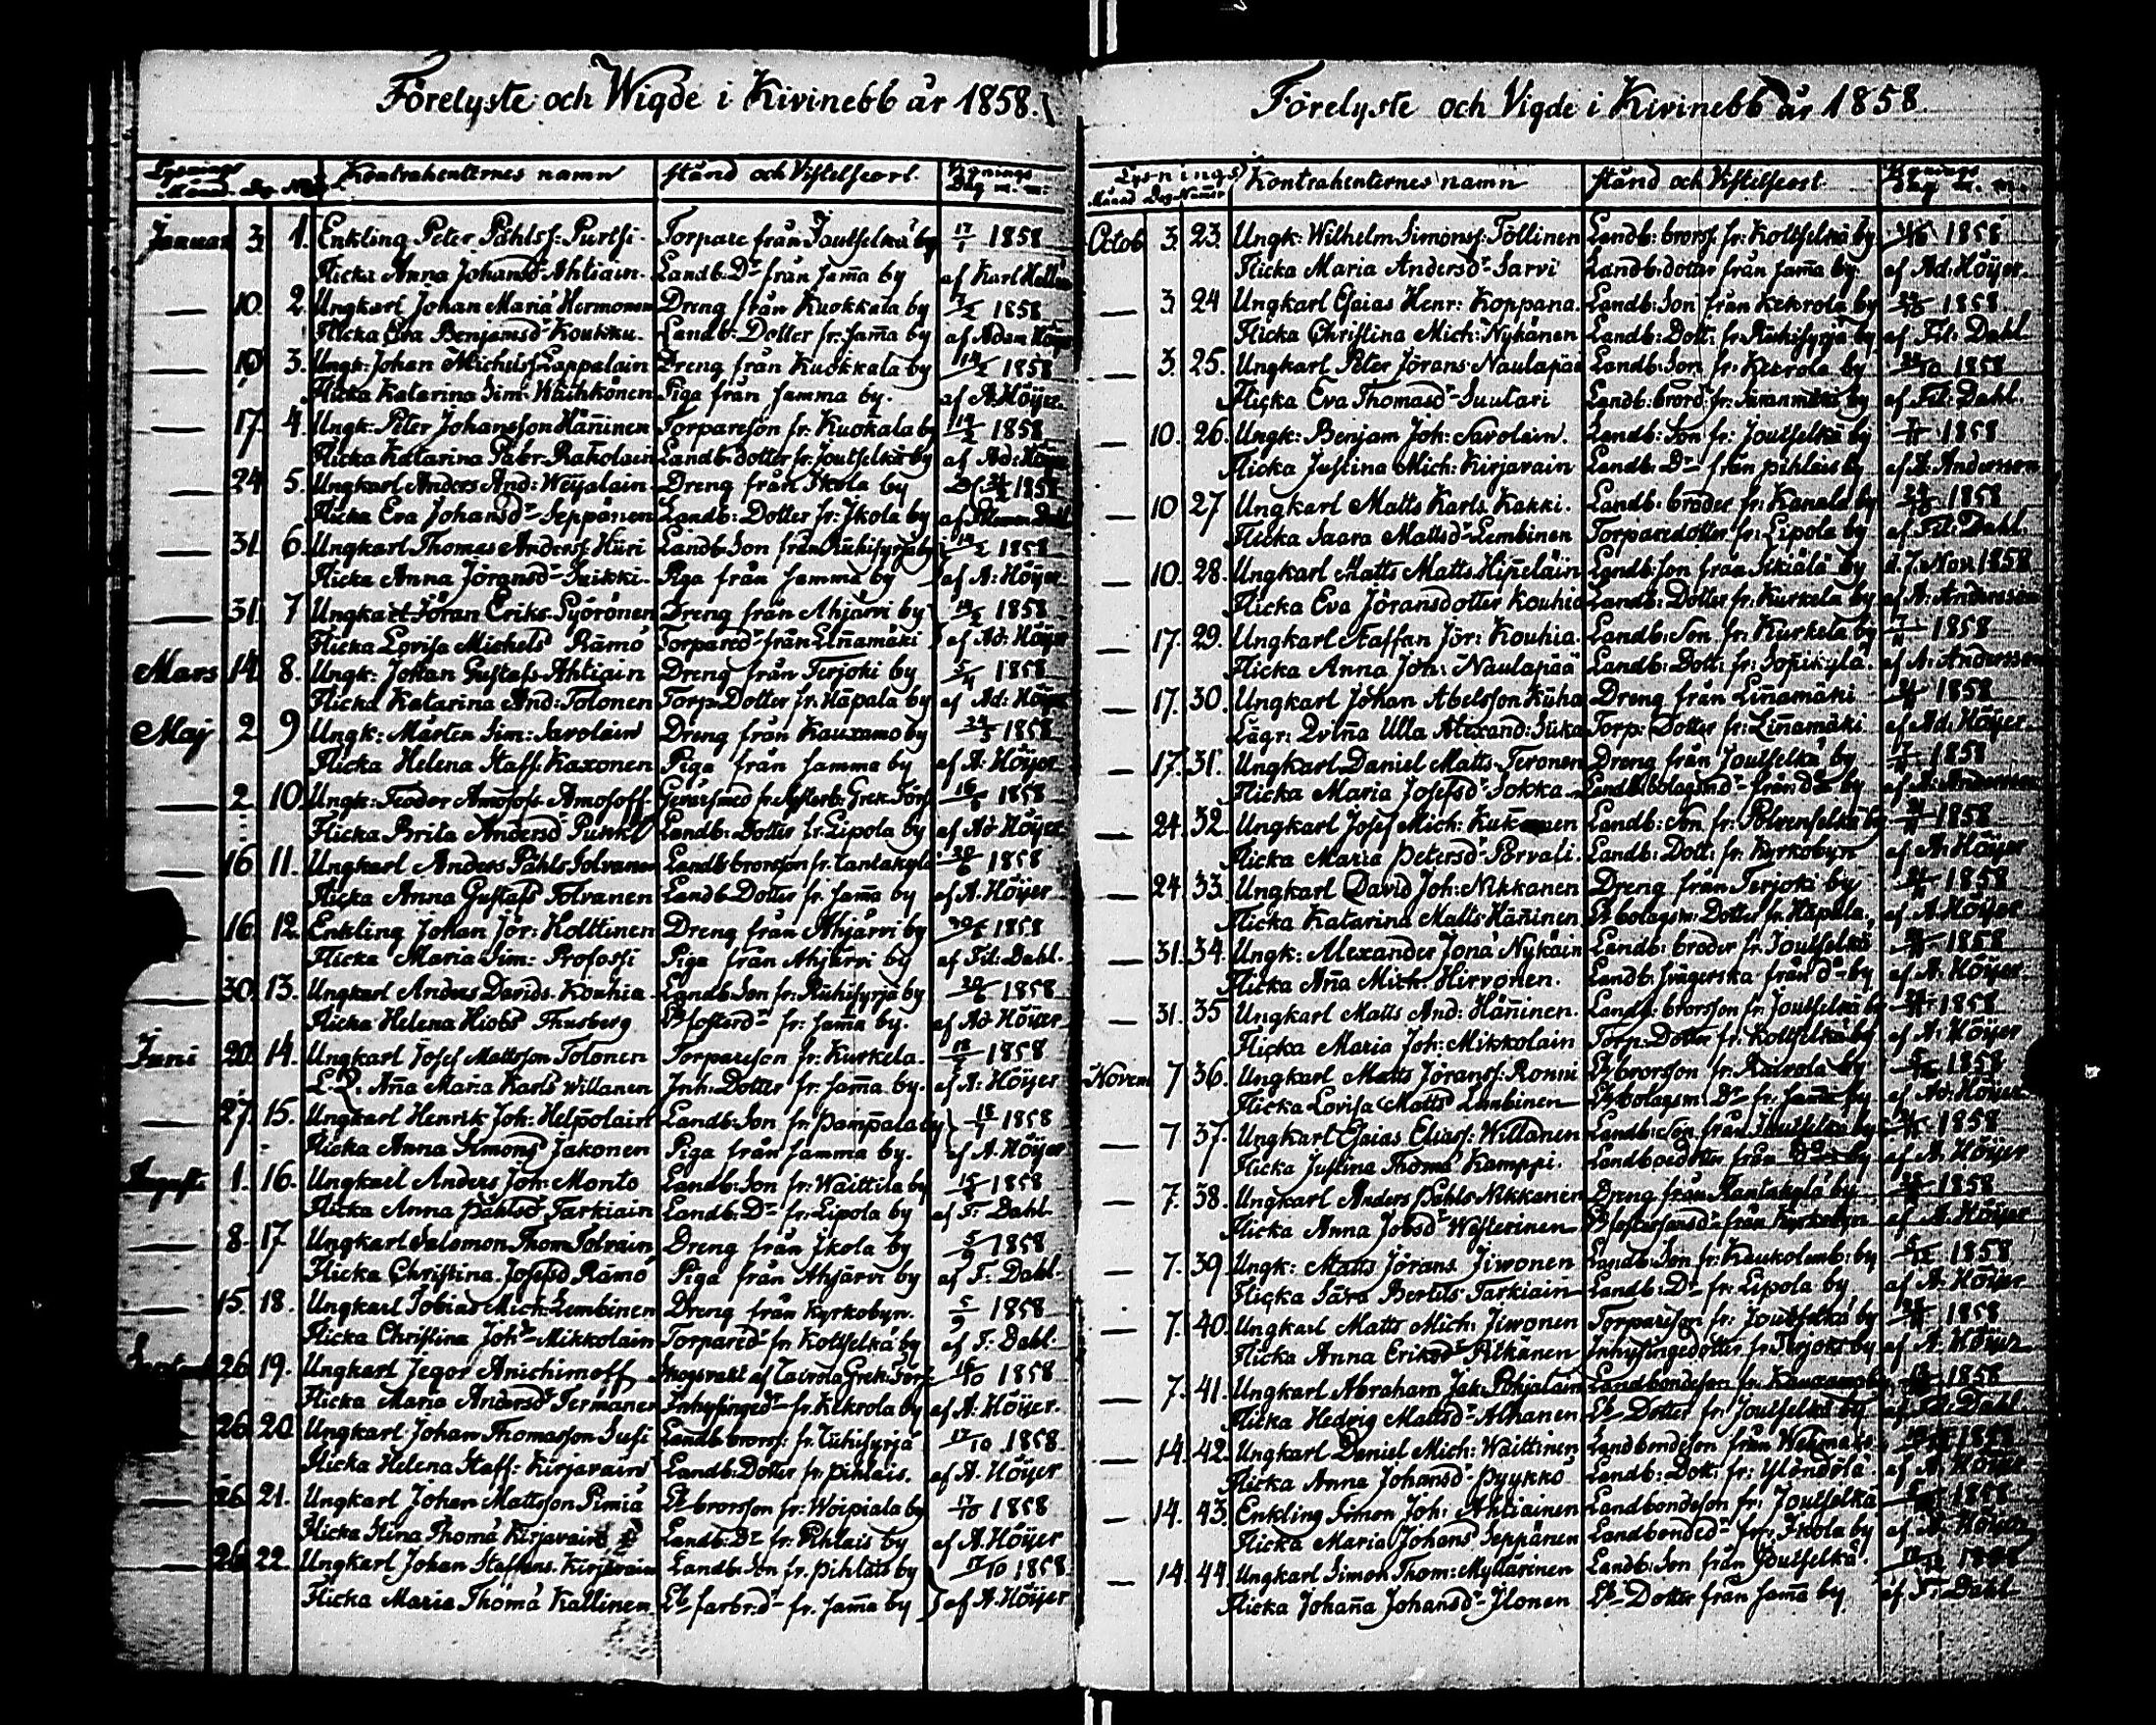 Förelyste och Wigde i Kivinebb år 1858.
Lysnings Kontrahenternes namn Stånd och Vistelseort Vignings
Månad Dag N:o Dag m. m.
Januar 3. 1. Enkling Peter Påhlss: Purtsi Torpare från Joutselkä by 17/1 1858
Flicka Anna Johansdr Ahtiain. Landb: Dr från samma by af Karl
— 10. 2. Ungkarl Johan Hermonen Dreng från Kuokkala by /2 1858
Flicka Eva Benjamsdr Koukku. Landb: Dotter fr: samma by af Adam Höijer
— 10 3. Ungk: Johan Michelss: Lappalain Dreng från Kuokkala by 14/2 1858
Flicka Katarina Sim: Piga från samma by. af A. Höijer
— 17. 4. Ungk: Peter Johansson Hänninen Torpareson fr. Kuokala by 14/2 1858
Flicka Katarina Rakolain Landb: dotter fr: Joutselkä by af Ad: Höijer
— 24 5. Ungkarl Anders And: Weijalain Dreng från Ikola by 1858
Flicka Eva Johansdr Seppänen Landb: Dotter fr: Ikola by af
— 31. 6. Ungkarl Thomas Anderss: Hiiri Landb: Son från Riihisyrjä by 14/2 1858
Flicka Anna Jöransdr Suikki. Piga från samma by af A: Höijer
— 31. 7 Ungkarl Jöran Eriks. Pyörönen Dreng från Ahjärvi by 1858
Flicka Lovisa Michels Rämö Torparedr från Linnamäki af Ad: Höijer
Mars 14. 8. Ungk: Johan Gustafs Ahtiain Dreng från Terjoki by 5/4 1858
Flicka Katarina And: Tolonen Torp: Dotter fr: Häpala by af Ad: Höijer
Maj 2 9 Ungk: Mårten Sim: Savolain Dreng från Kauxamo by 24/5 1858
Flicka Helena Staff: Kaxonen Piga från samma by af A: Höijer
— 2. 10. Ungk: Feodor Amosoff fr. Grek. 16/ 1858
Flicka Brita Andersd Punkki Landb: Dotter fr. Lipola by af Ad Höijer
— 16 11. Ungkarl Anders Påhls Tolvanen Landb: brorsson fr. 20/6 1858
Flicka Anna Gustafs Tolvanen Landb: Dotter fr. samma by af A. Höijer
— 16. 12. Enkling Johan Jör: Holttinen Dreng från Ahjärvi by 1858
Flicka Maria Sim: Profossi Piga från Ahjärvi by af Fil: Dahl.
— 30. 13. Ungkarl Anders Davids. Kouhia Landb: Son fr: Riihisyrjä by 20/6 1858
Flicka Helena Hiobs Thusberg fosterdr fr: samma by. af Ad Höijer
Juni 20. 14. Ungkarl Josef Mattsson Tolonen Torpareson fr: Kurkela. 18/ 1858
Anna Maria Karls Willanen Inh: Dotter fr. samma by. af A: Höijer
— 27. 15. Ungkarl Henrik Joh: Helpolain Landb: Son fr: Pamppala by 18/ 1858
Flicka Anna Simons Jakonen Piga från samma by. af A. Höijer
Augusti 1. 16. Ungkarl Anders Joh: Monto Landb: Son fr: Waittila by 15/8 1858
Flicka Anna Påhlsdr Tarkiain Landb: Dr fr: Lipola by af F. Dahl
— 8. 17 Ungkarl Salomon Thom: Tolvain Dreng från Ikola by 5/9 1858
Flicka Christina Josefsd Rämö Piga från Ahjärvi by af F: Dahl
— 15. 18. Ungkarl Tobias Mich: Lembinen Dreng från Kyrkobyn. 5/9 1858
Flicka Christina Johdr Mikkolain Torparedr fr. Kottselkä by af F: Dahl
Septemb 26. 19. Ungkarl Jegor Anichimoff Skogsvakt af Grek: 16/10 1858
Flicka Maria Andersdr Termänen Inhysingedr fr: Kekrola by af A: Höijer.
26. 20. Ungkarl Johan Thomasson Susi Landb: brorss: fr: Riihisyrjä 17/10 1858
Flicka Helena Staff: Kirjavain Landb: Dotter fr: Pihlais. af A. Höijer
— 26. 21. Ungkarl Johan Mattsson Pimiä brorsson fr: Woipiala by 17/10 1858
Flicka Stina Thoma Kirjavain Landb: Dr fr: Pihlais by af A. Höijer
— 26 22. Ungkarl Johan Staffans. Kirjavain Landb: Son fr. Pihlais by 17/10 1858
Flicka Maria Thoma Kallinen farbr: dr fr. samma by af A. Höijer
Förelyste och Vigde i Kivinebb år 1858.
Lysnings Kontrahenternes namn Stånd och Vistelseort Vignings
Månad Dag Num:r Dag m. m.
Octob 3. 23. Ungk: Wilhelm Simonss: Töllinen Landb: brorss. fr. Kottselkä by 1858
Flicka Maria Andersdr Sarvi Landb: dotter från samma by. af Ad: Höijer
— 3 24 Ungkarl Esaias Henr: Koppana. Landb: Son från Kekrola by 1858
Flicka Christina Mich: Nykänen Landb: Dott: fr: Riihisyrjä by af Fil: Dahl.
— 3. 25. Ungkarl Peter Jörans Naulapää Landb: Son fr: Kekrola by 24/10 1858
Flicka Eva Thomasdr Suutari Landb: fr: by af Fil: Dahl.
— 10. 26. Ungk: Benjam Joh: Savolain. Landb: Son fr: Joutselkä by 1858
Flicka Justina Mich: Kirjavain Landb: Dr från Pihlais by af A: Andersson
— 10 27 Ungkarl Matts Karls. Kakki. Landb: broder fr: Kanala by 1858
Flicka Saara Mattsdr Lembinen Torparedotter fr: Lipola by af Fil: Dahl.
— 10. 28. Ungkarl Matts Matts. Hipeläin Landb: son från by d. 7. Nov. 1858
Flicka Eva Jöransdotter Kouhia Landb: Dotter fr: Kurkela by af A: Andersson
— 17. 29. Ungkarl Staffan Jör: Kouhia. Landb: Son fr: Kurkela by 7/11 1858
Flicka Anna Joh: Naulapää Landb: Dott: fr: Sopikylä. af A: Andersson
— 17. 30. Ungkarl Johan Abelsson Kiiha Dreng från Linnamäki 1858
Lägr: Qvinna Ulla Alexand: Torp: Dotter fr: Linnamäki af Ad. Höijer
— 17. 31. Ungkarl Daniel Matts Teronen Dreng från Joutselkä by 1858
Flicka Maria Josefsdr Sokka Landb: bolagsmdr från by af A: Andersson
— 24. 32. Ungkarl Josef Mich: Landb: Son fr: Polvenselkä by 1858
Flicka Maria Petersdr Porvali. Landb: Dott: fr. Kyrkobyn af A: Höijer
— 24. 33. Ungkarl David Joh: Nikkanen Dreng från Terjoki by 1858
Flicka Katarina Matts Hänninen bolagsm: Dotter fr. Häpala. af A. Höijer
— 31. 34. Ungk: Alexander Jona Nykäin Landb: broder fr. Joutselkä 1858
Flicka Anna Mich. Hirvonen. Landb: från by af A: Höijer
— 31. 35 Ungkarl Matts And: Hänninen. Landb: brorsson fr: Joutselkä by 1858
Flicka Maria Joh: Mikkolain Torp: Dotter fr: Kottselkä by af A: Höijer
Novem 7 36. Ungkarl Matts Jöranss: Ronni brorsson fr. Raivola by 1858
Flicka Lovisa Matts Lembinen bolagsm: Dr fr. samma by af Ad: Höijer
— 7. 37. Ungkarl Esaias Eliass: Willanen Landb: Son från Joutselkä by 1858
Flicka Justina Thoma Kamppi. Landboedotter från by af A. Höijer
— 7. 38. Ungkarl Anders Påhls Nikkanen Dreng från Rantakylä by 1858
Flicka Anna Jobsdr Westerinen från Kyrkobyn af A. Höijer
— 7. 39 Ungk: Matts Jörans Jiwonen Landb: Son fr: Kaukolemb: by 1858
Flicka Sara Bertils Tarkiain Landb: Dr fr: Lipola by af A. Höijer
— 7. 40. Ungkarl Matts Mich: Jiwonen Torpareson fr: Joutselkä by 1858
Flicka Anna Eriksdr Rikänen Inhysingedotter fr. Terjoki by af A. Höijer
— 7. 41. Ungkarl Abraham Jak: Pohjalain Landbondeson fr. Kauxamo by 1858
Flicka Hedvig Mattsdr Alhanen Dotter fr: Joutselkä by af Fil: Dahl
— 14. 42. Ungkarl Daniel Mich: Waittinen Landbondeson från 1858
Flicka Anna Johansdr Pyykkö Landb: Dott: fr: af A: Höijer
— 14. 43. Enkling Simon Joh: Ahtiainen Landbondeson fr: Joutselkä 1858
Flicka Maria Johans Seppänen Landbondedr fr: Ikola by af A. Höijer
— 14. 44 Ungkarl Simon Thom: Myllärinen Landb: Son från Joutselkä. 1858
Flicka Johanna Johansdr Ilonen Dotter från samma by af F: Dahl